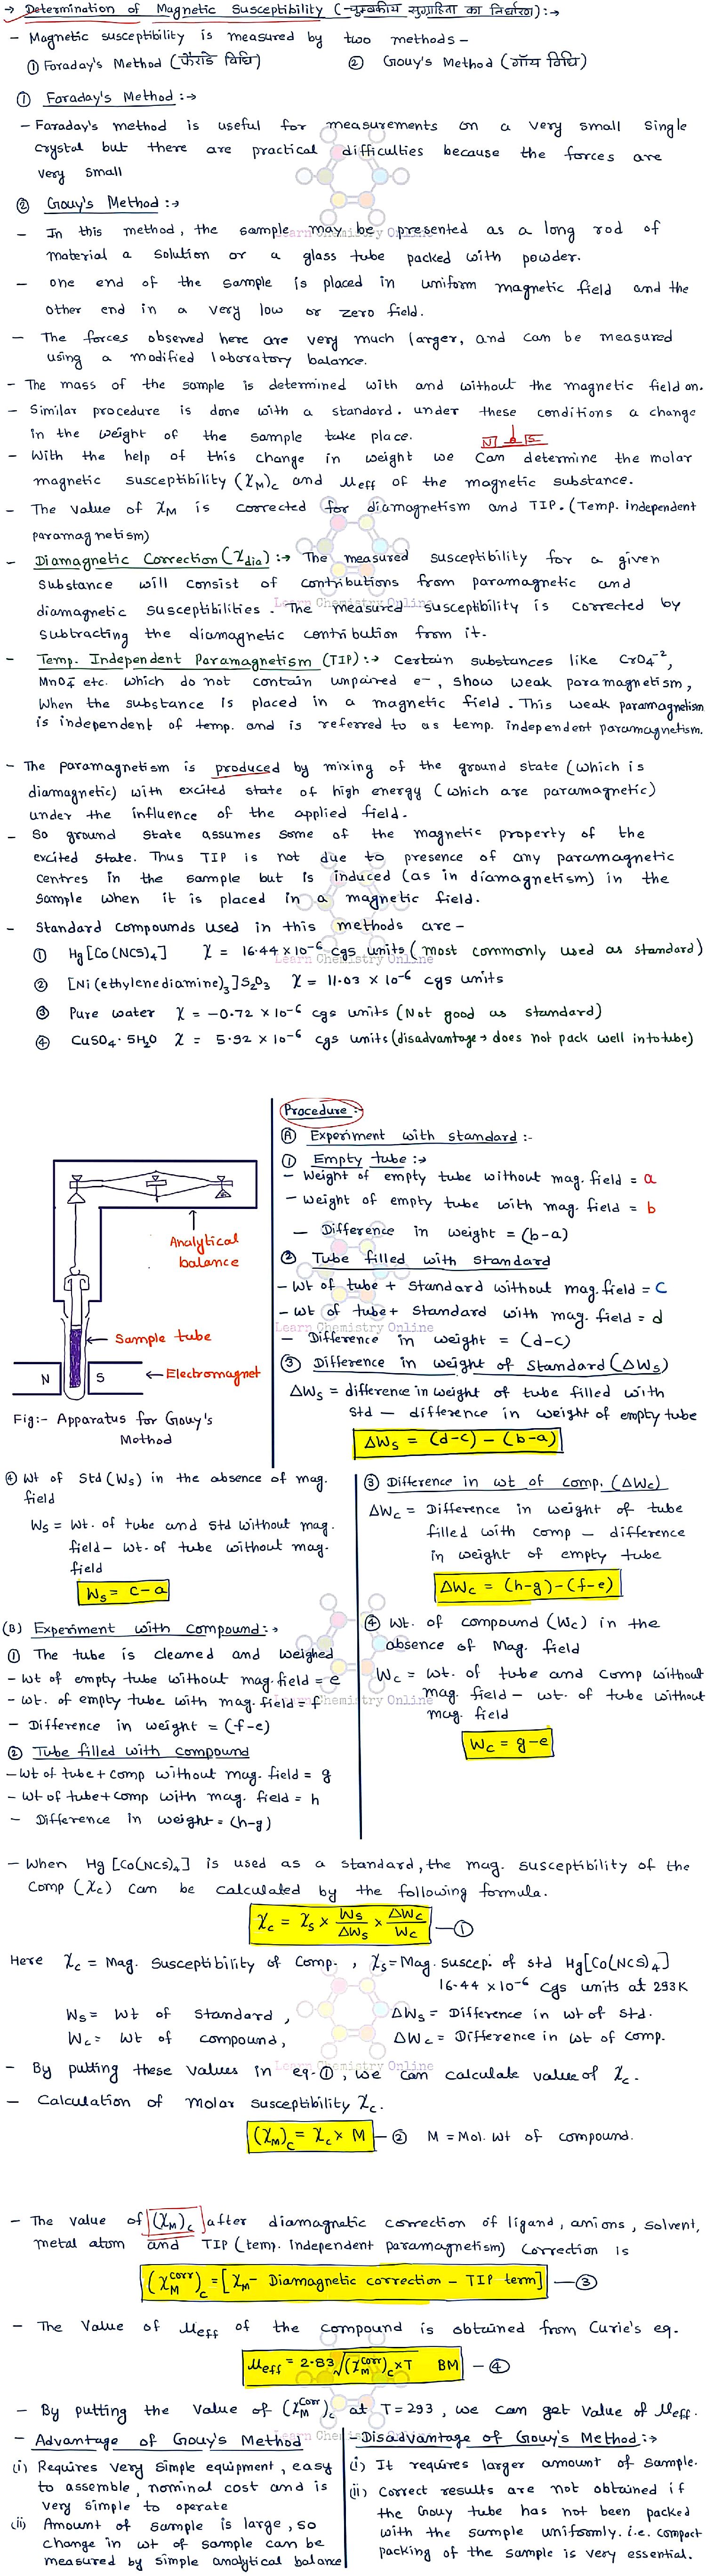 → Determination of Magnetic Susceptibility (चुम्बकीय सुग्राहिता का निर्धारण):→
- Magnetic susceptibility is measured by two methods -
① Foraday's Method (फैराडे विधि) ② Gouy's Method (गॉय विधि)
① Faraday's Method :→
- Faraday's method is useful for measurements on a very small single
crystal but there are practical difficulties because the forces are
very small
② Gouy's Method :→
- In this method, the sample may be presented as a long rod of
material a solution or a glass tube packed with powder.
- one end of the sample is placed in uniform magnetic field and the
other end in a very low or zero field.
- The forces observed here are very much larger, and can be measured
using a modified laboratory balance.
- The mass of the sample is determined with and without the magnetic field on.
- Similar procedure is done with a standard. under these conditions a change
in the weight of the sample take place.
N S
- With the help of this change in weight we can determine the molar
magnetic susceptibility (χM)c and μeff of the magnetic substance.
- The value of χM is corrected for diamagnetism and TIP. (Temp. independent
paramagnetism)
- Diamagnetic Correction (χdia) :→ The measured susceptibility for a given
substance will consist of contributions from paramagnetic and
diamagnetic susceptibilities. The measured susceptibility is corrected by
subtracting the diamagnetic contribution from it.
- Temp. Independent Paramagnetism (TIP) :→ Certain substances like CrO4⁻², 
MnO4⁻ etc. which do not contain unpaired e⁻, show weak paramagnetism,
when the substance is placed in a magnetic field. This weak paramagnetism
is independent of temp. and is referred to as temp. independent paramagnetism.
- The paramagnetism is produced by mixing of the ground state (which is
diamagnetic) with excited state of high energy (which are paramagnetic)
under the influence of the applied field.
- So ground state assumes some of the magnetic property of the
excited state. Thus TIP is not due to presence of any paramagnetic
centres in the sample but is induced (as in diamagnetism) in the
sample when it is placed in a magnetic field.
- Standard compounds used in this methods are -
① Hg[Co(NCS)4] χ = 16.44 × 10⁻⁶ cgs units (most commonly used as standard)
② [Ni(ethylenediamine)3]S2O3 χ = 11.03 × 10⁻⁶ cgs units
③ Pure water χ = -0.72 × 10⁻⁶ cgs units (Not good as standard)
④ CuSO4·5H2O χ = 5.92 × 10⁻⁶ cgs units (disadvantage → does not pack well into tube)
Analytical
balance
Sample tube
N S ← Electromagnet
Fig:- Apparatus for Gouy's
Method
Procedure :-
Ⓐ Experiment with standard :-
① Empty tube :→
- Weight of empty tube without mag. field = a
- weight of empty tube with mag. field = b
- Difference in weight = (b-a)
② Tube filled with standard
- Wt of tube + standard without mag. field = c
- wt of tube + standard with mag. field = d
- Difference in weight = (d-c)
③ Difference in weight of standard (ΔWs)
ΔWs = difference in weight of tube filled with
std - difference in weight of empty tube
ΔWs = (d-c) - (b-a)
④ Wt of std (Ws) in the absence of mag.
field
Ws = Wt. of tube and std without mag.
field - wt. of tube without mag.
field
Ws = c-a
(B) Experiment with compound :→
① The tube is cleaned and weighed
- wt of empty tube without mag. field = e
- wt. of empty tube with mag. field = f
- Difference in weight = (f-e)
② Tube filled with compound
- Wt of tube + comp without mag. field = g
- wt of tube + comp with mag. field = h
- Difference in weight = (h-g)
③ Difference in wt of comp. (ΔWc)
ΔWc = Difference in weight of tube
filled with comp - difference
in weight of empty tube
ΔWc = (h-g)-(f-e)
④ Wt. of compound (Wc) in the
absence of Mag. field
Wc = wt. of tube and comp without
mag. field - wt. of tube without
mag. field
Wc = g-e
- When Hg[Co(NCS)4] is used as a standard, the mag. susceptibility of the
comp (χc) can be calculated by the following formula.
χc = χs × Ws/ΔWs × ΔWc/Wc — ①
Here χc = Mag. Susceptibility of Comp., χs = Mag. suscep. of std Hg[Co(NCS)4]
16.44 × 10⁻⁶ cgs units at 293K
Ws = Wt of standard, ΔWs = Difference in wt of std.
Wc = wt of compound, ΔWc = Difference in wt of comp.
- By putting these values in eq. ①, we can calculate value of χc.
- Calculation of molar susceptibility χc.
(χM)c = χc × M — ② M = Mol. wt of compound.
- The value of (χM)c after diamagnetic correction of ligand, anions, solvent,
metal atom and TIP (temp. independent paramagnetism) correction is
(χM^corr)c = [χM - Diamagnetic correction - TIP term] — ③
- The value of μeff of the compound is obtained from Curie's eq.
μeff = 2.83 √(χM^corr)c × T BM — ④
- By putting the value of (χM^corr)c at T = 293, we can get value of μeff.
- Advantage of Gouy's Method
(i) Requires very simple equipment, easy
to assemble, nominal cost and is
very simple to operate
(ii) Amount of sample is large, so
change in wt of sample can be
measured by simple analytical balance
- Disadvantage of Gouy's Method :→
(i) It requires larger amount of sample.
(ii) Correct results are not obtained if
the Gouy tube has not been packed
with the sample uniformly. i.e. compact
packing of the sample is very essential.
Learn Chemistry Online
Learn Chemistry Online
Learn Chemistry Online
Learn Chemistry Online
Learn Chemistry Online
Learn Chemistry Online
Learn Chemistry Online